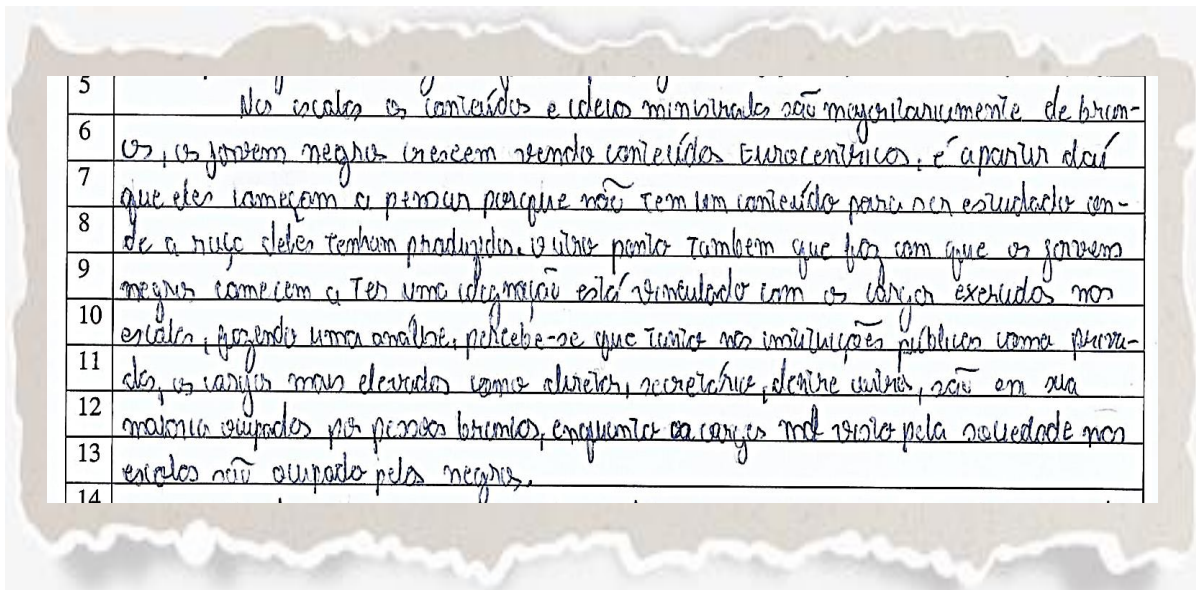 5 Nas escolas os conteúdos e ideias ministrados são majoritariamente de bran-
6 cos, os jovem negros crescem vendo conteúdos Eurocentricos, é apartir daí
7 que eles começam a pensar porque não tem um conteúdo para ser estudado on-
8 de a raça deles tenham produzidos. Outro ponto tambem que faz com que os jovem
9 negros comecem a ter uma idignação está vinculado com os cargos exercidos nas
10 escolas, fazendo uma análise, percebe-se que tanto nas instituições públicas como priva-
11 das, os cargos mais elevados como diretor, secretário, dentre outros, são em sua
12 maioria ocupados por pessoas brancas, enquanto os cargos mal visto pela sociedade nas
13 escolas são ocupado pelos negros.
14